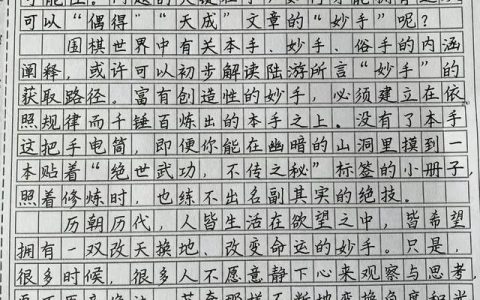 可以“偶得”“天成”文章的“妙手”呢？
围棋世界中有关本手、妙手、俗手的内涵
阐释，或许可以初步解读陆游所言“妙手”的
获取路径。富有创造性的妙手，必须建立在依
照规律而千锤百炼出的本手之上。没有了本手
这把手电筒，即便你能在幽暗的山洞里摸到一
本贴着“绝世武功，不传之秘”标签的小册子，
照着修炼时，也练不出名副其实的绝技。
历朝历代，人皆生活在欲望之中，皆希望
拥有一双改天换地、改变命运的妙手。只是，
很多时候，很多人不愿意静下心来观察与思考，